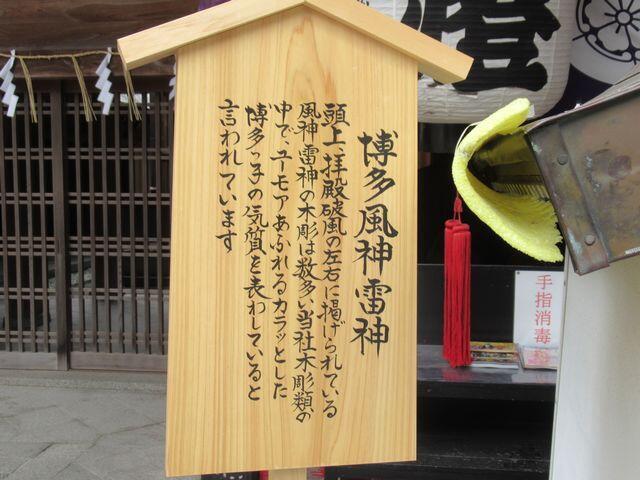 博多風神雷神
頭上、拝殿破風の左右に掲げられている
風神、雷神の木彫は数多い当社木彫類の
中で、ユーモアあふれるカラッとした
博多っ子の気質を表わしていると
言われています
手指消毒